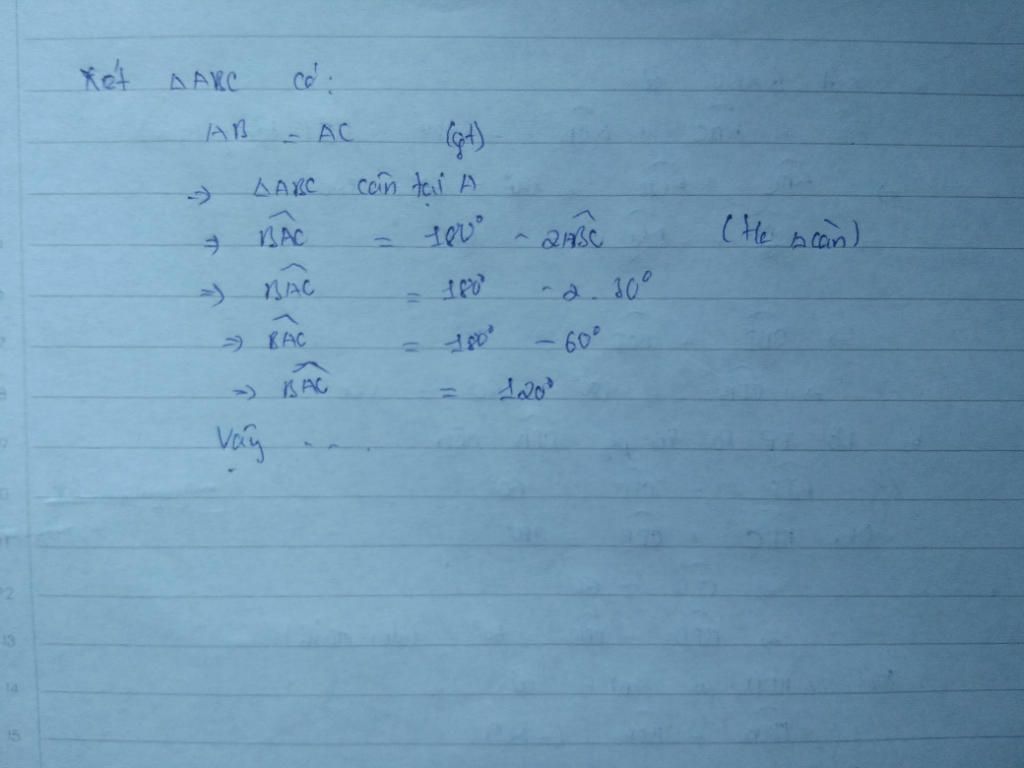 Xét △ABC có:
AB = AC (gt)
=> △ABC cân tại A
=> \widehat{BAC} = 180° - 2\widehat{ABC} (t/c △cân)
=> \widehat{BAC} = 180° - 2. 30°
=> \widehat{BAC} = 180° - 60°
=> \widehat{BAC} = 120°
Vậy ...
12
13
14
15